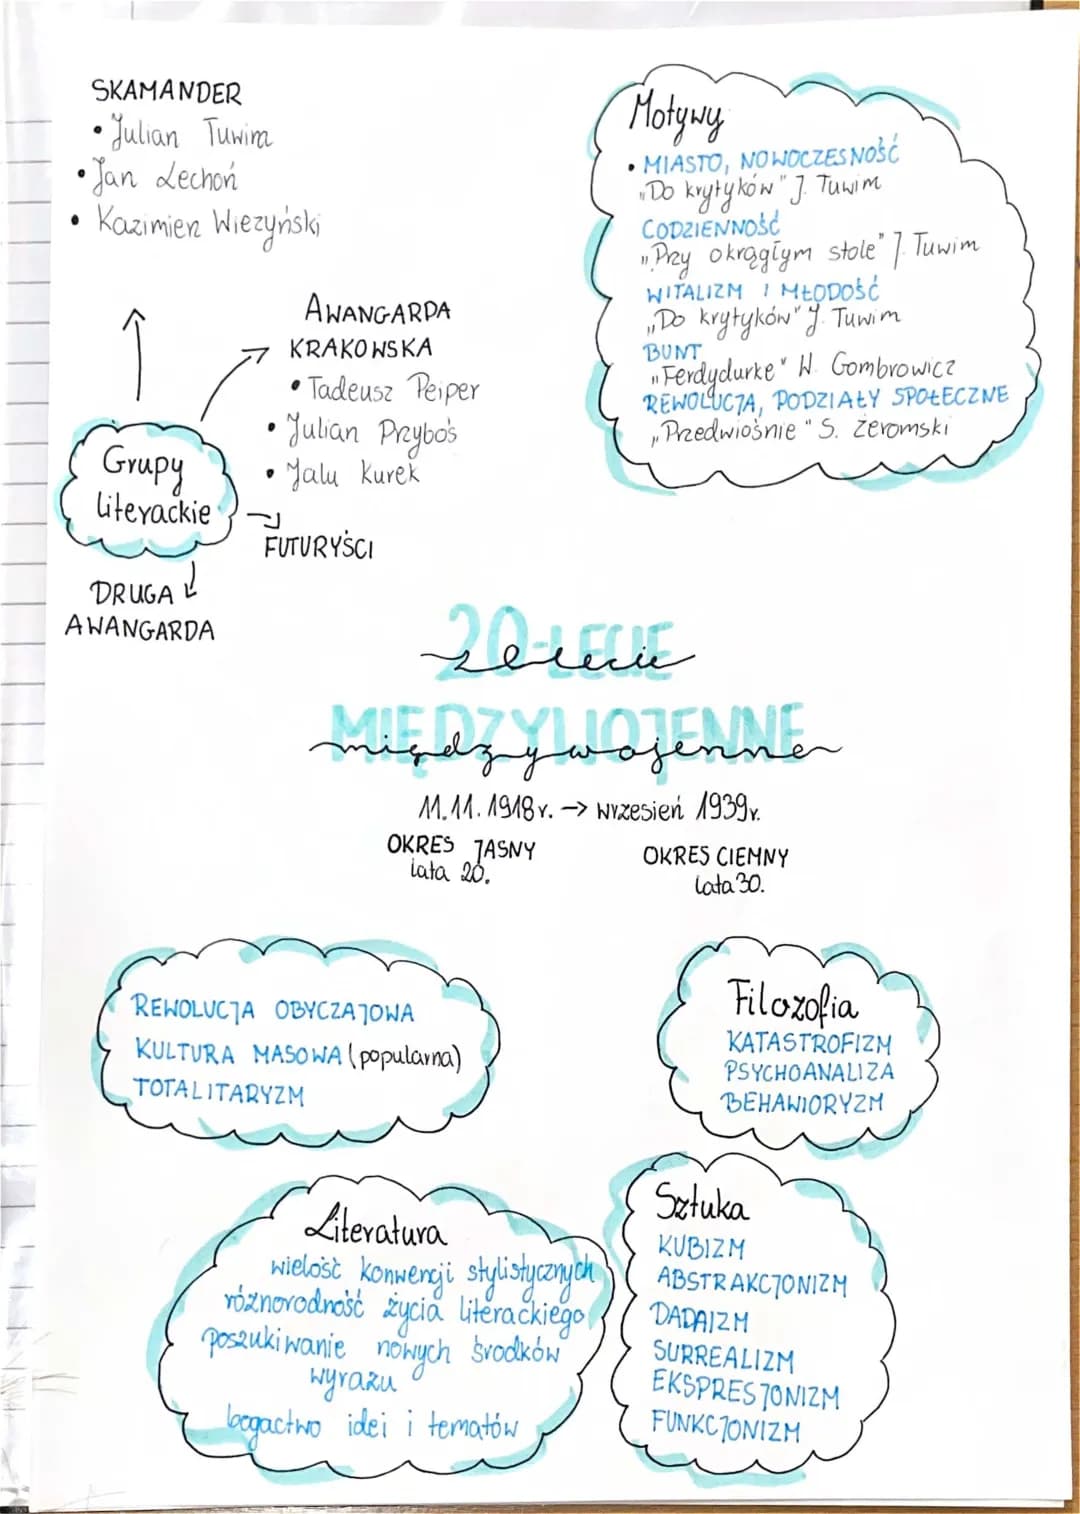 SKAMANDER
• Julian Tuwim
• Jan Lechoń
• Kazimierz Wiezyński
AWANGARDA
KRAKOWSKA
• Tadeusz Peiper
• Julian Przyboś
• Jalu Kurek
Grupy
literackie
FUTURYŚCI
DRUGA
AWANGARDA
Motywy
• MIASTO, NOWOCZESNOŚĆ
„Do krytyków" J. Tuwim
CODZIENNOŚĆ
„Przy okrągłym stole" J. Tuwim
WITALIZM I MŁODOŚĆ
„Do krytyków" J. Tuwim
BUNT
„Ferdydurke" W. Gombrowicz
REWOLUCJA, PODZIAŁY SPOŁECZNE
„Przedwiośnie" S. Żeromski
20-LECIE
20lecie
MIĘDZYWOJENNE
międzywojenne
11.11.1918r. → wrzesień 1939r.
OKRES JASNY
lata 20.
OKRES CIEMNY
lata 30.
REWOLUCJA OBYCZAJOWA
KULTURA MASOWA (popularna)
TOTALITARYZM
Filozofia
KATASTROFIZM
PSYCHOANALIZA
BEHAWIORYZM
Literatura
wielość konwencji stylistycznych
różnorodność życia literackiego
poszukiwanie nowych środków
wyrazu
bogactwo idei i tematów
Sztuka
KUBIZM
ABSTRAKCJONIZM
DADAIZM
SURREALIZM
EKSPRESJONIZM
FUNKCJONIZM